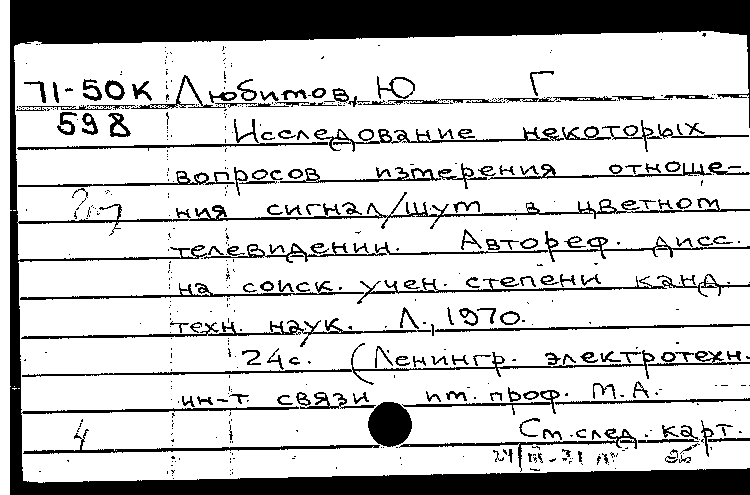 71-50К Любимов, Ю Г
598 Исследование некоторых
вопросов измерения отноше-
ния сигнал/шум в цветном
телевидении. Автореф. дисс.
на соиск. учен. степени канд.
техн. наук. Л., 1970.
24с. (Ленингр. электротехн.
ин-т связи им. проф. М.А.
4 См. след. карт.